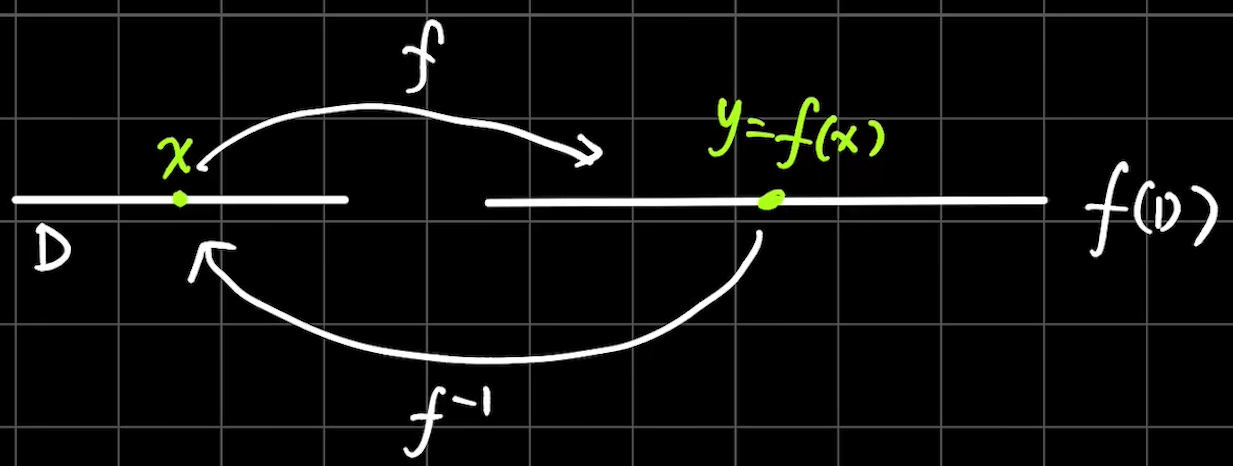 f
x
y=f(x)
D
f(D)
f⁻¹